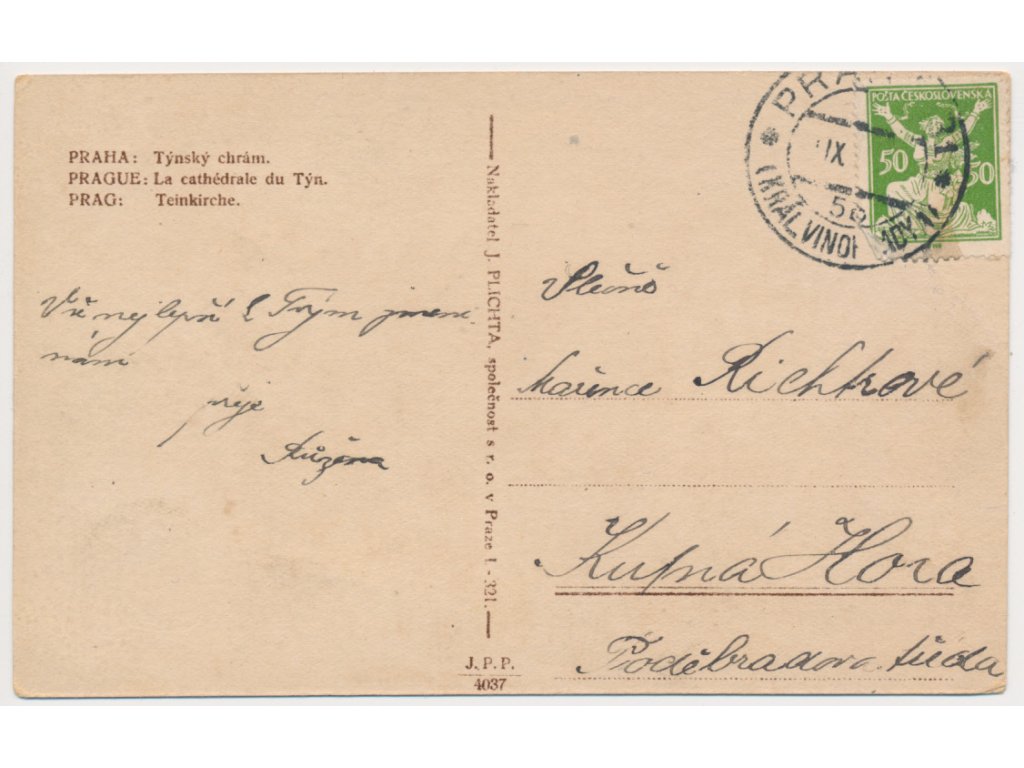 PRAHA: Týnský chrám.
PRAGUE: La cathédrale du Týn.
PRAG: Teinkirche.
Vše nejlepší k Tvým jmeni-
nám
přeje
Růžena
Nakladatel J. PLICHTA, společnost s r. o. v Praze I. - 321.
J. P. P.
4037
POŠTA ČESKOSLOVENSKÁ
50 50
PRAHA 31
IX
5a
(KRÁL. VINOHRADY)
Slečně
Mařence Richtrové
Kutná Hora
Poděbradova třída